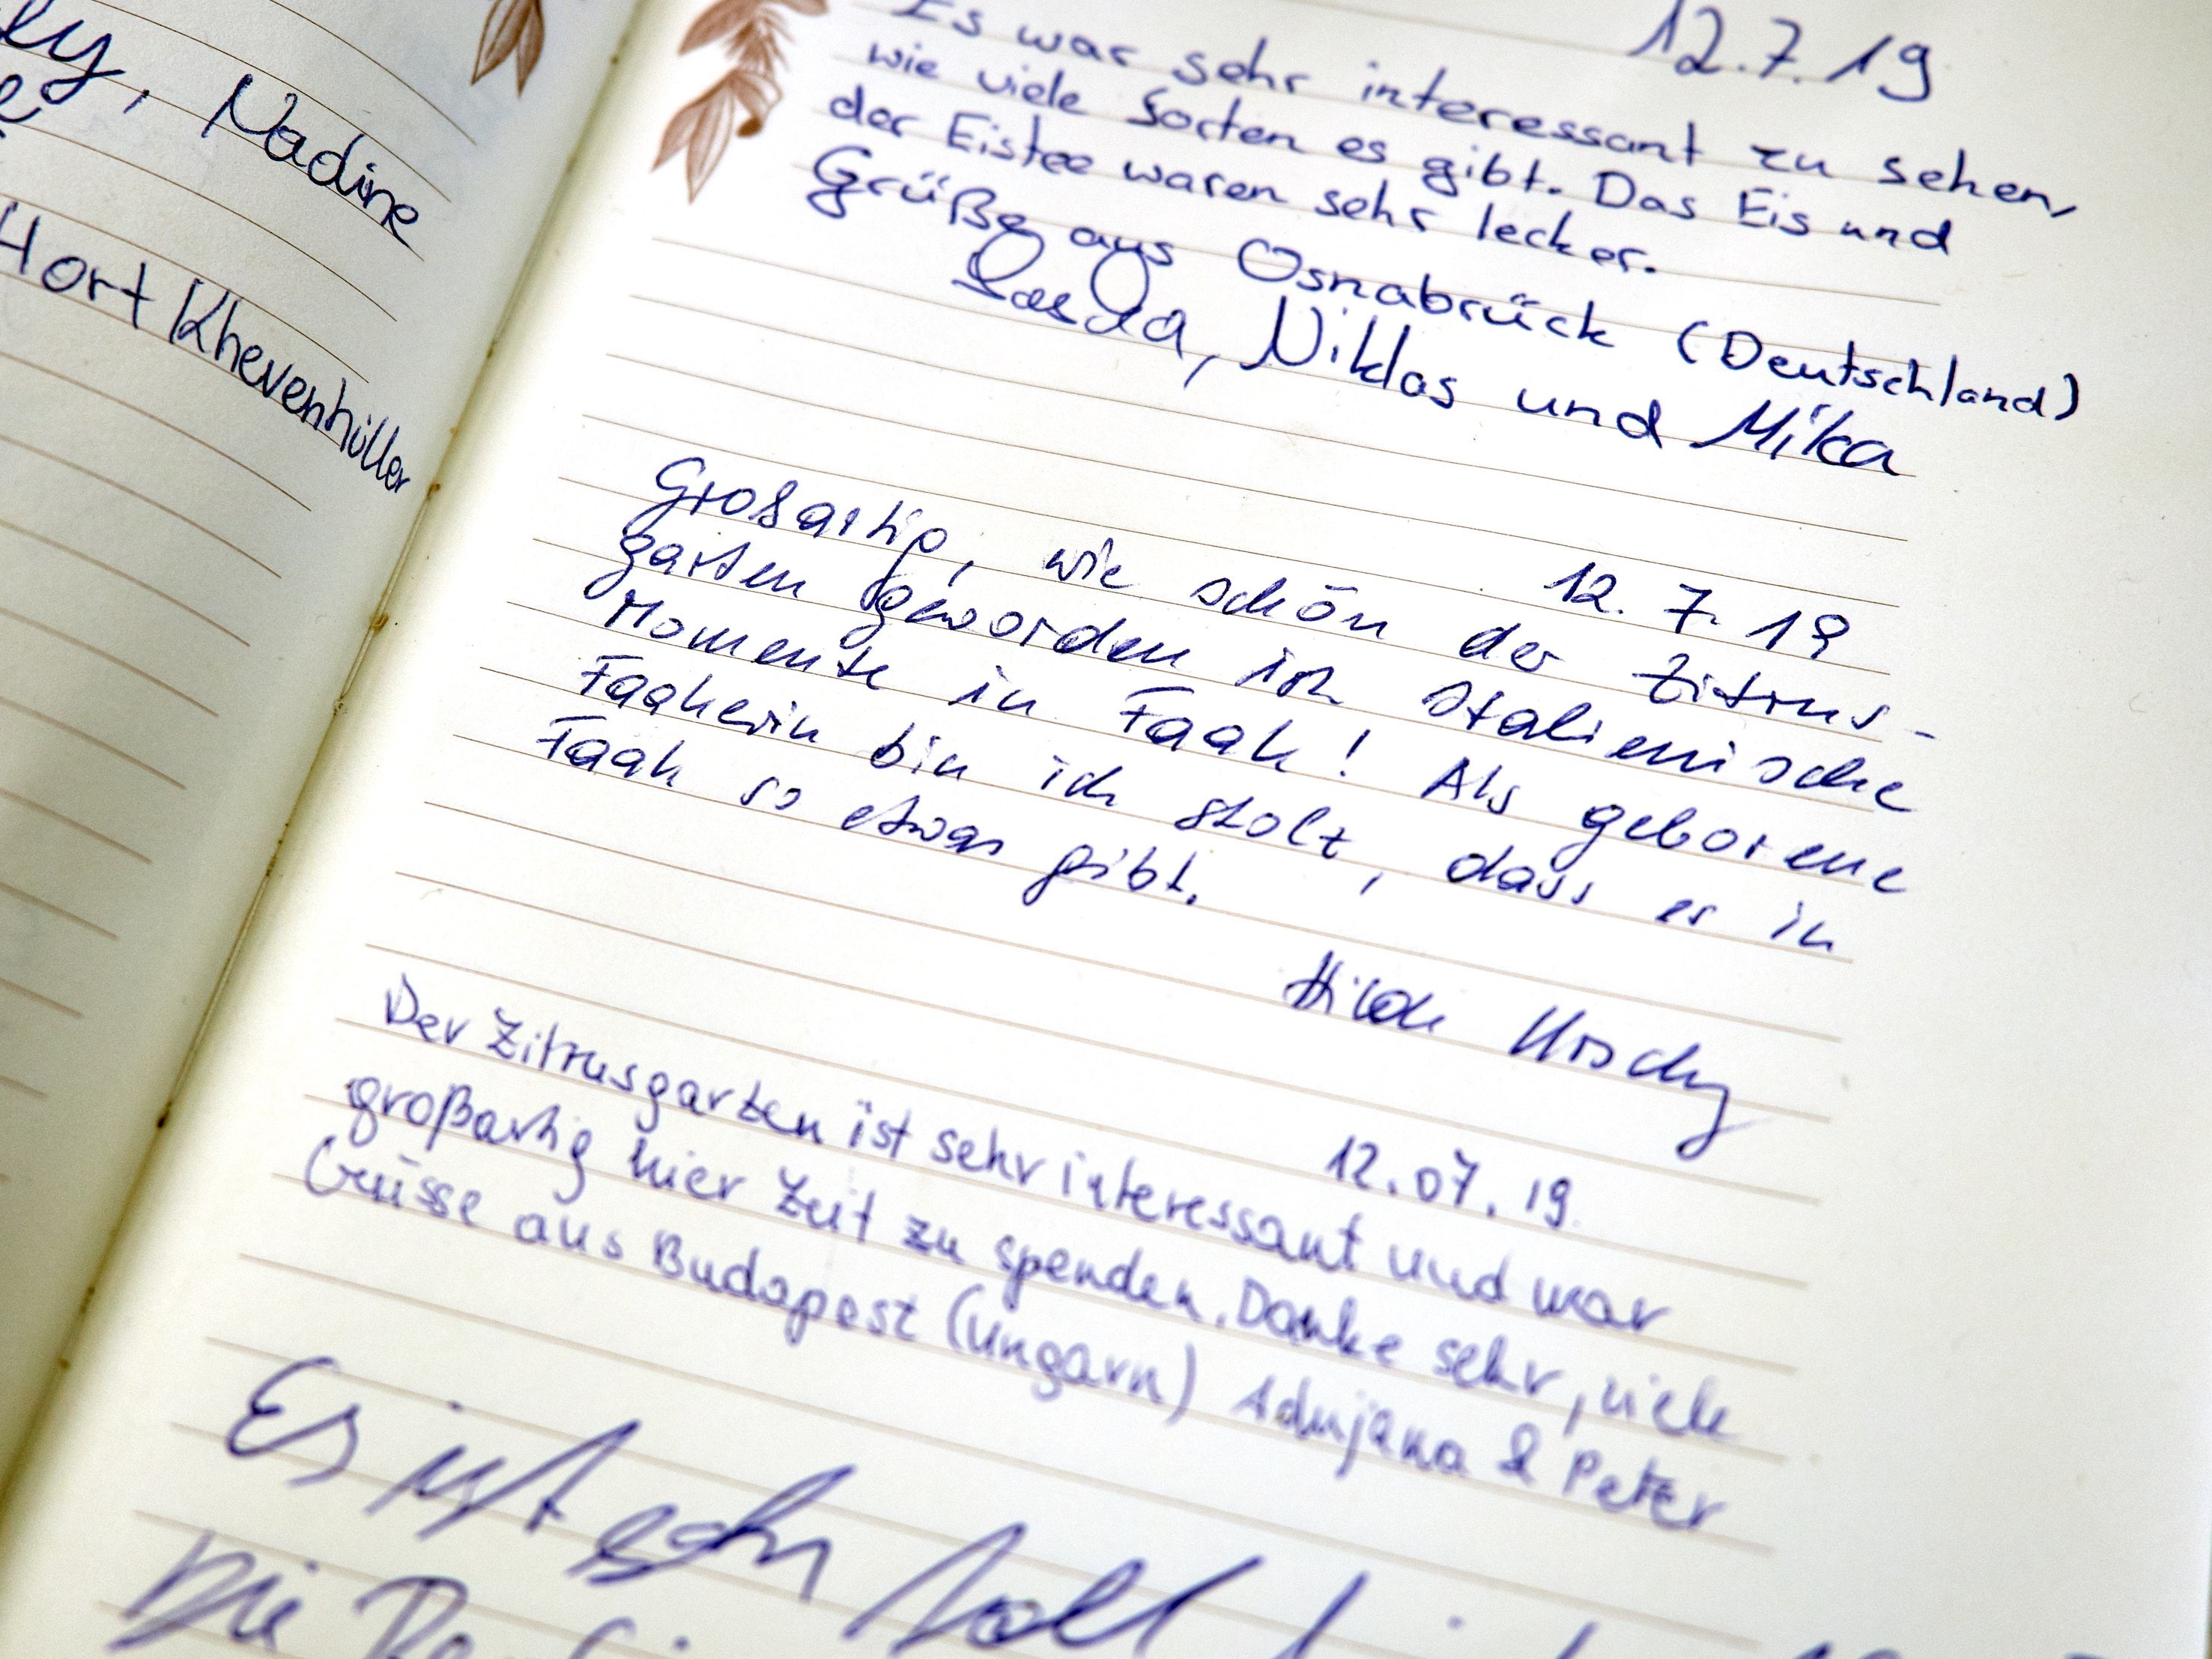 Nadine
Hort Khevenhüller
12.7.19
Es war sehr interessant zu sehen,
wie viele Sorten es gibt. Das Eis und
der Eistee waren sehr lecker.
Grüße aus Osnabrück (Deutschland)
Niklas und Mika
12. 7. 19
Großartig, wie schön der Zitrus-
garten geworden ist. Italienische
Momente in Faak! Als geborene
Faakerin bin ich stolz, dass es in
Faak so etwas gibt.
12.07.19
Der Zitrusgarten ist sehr interessant und war
großartig hier Zeit zu spenden. Danke sehr, viele
Grüsse aus Budapest (Ungarn) & Peter
Es ist sehr toll
Die